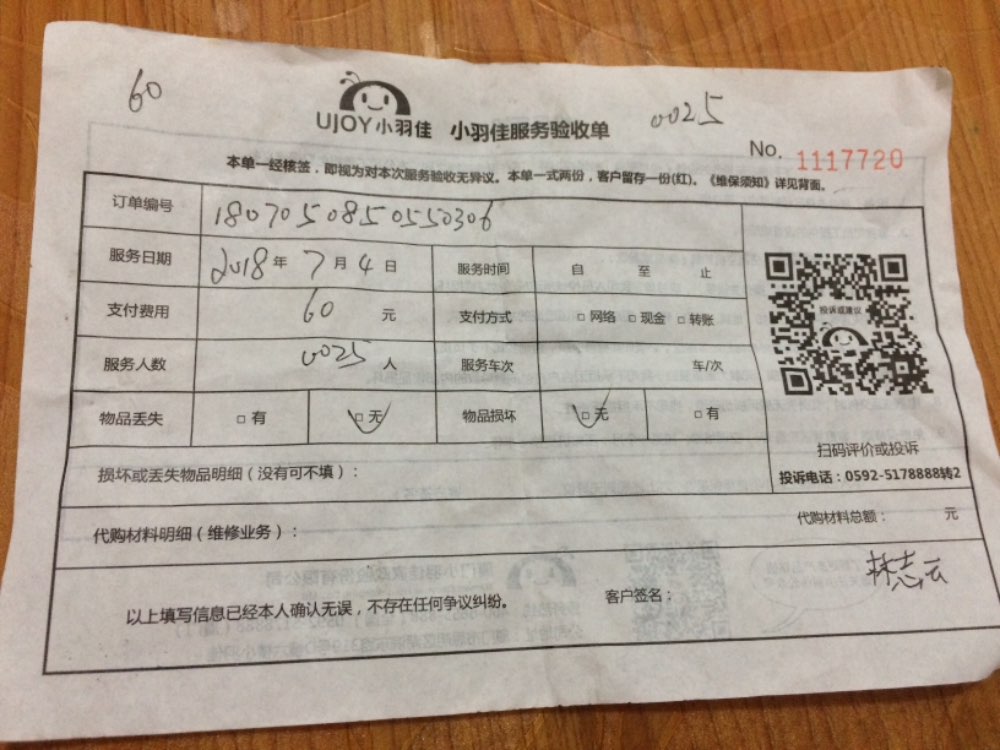 60
UJOY小羽佳 小羽佳服务验收单
0025
No. 1117720
本单一经核签，即视为对本次服务验收无异议。本单一式两份，客户留存一份(红)。《维保须知》详见背面。
订单编号 1807050850550306
服务日期 2018年 7月4日 服务时间 自 至 止
支付费用 60 元 支付方式 □网络 □现金 □转账
投诉或建议
服务人数 0025 人 服务车次 车/次
物品丢失 □有 □无 物品损坏 □无 □有
扫码评价或投诉
投诉电话：0592-5178888转2
损坏或丢失物品明细（没有可不填）：
代购材料明细（维修业务）： 代购材料总额： 元
以上填写信息已经本人确认无误，不存在任何争议纠纷。 客户签名： 林志云